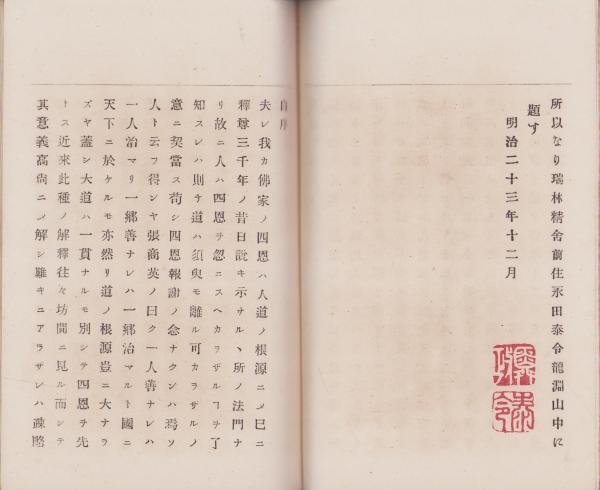 所以なり瑞林精舍前住永田泰令龍淵山中に
題す
明治二十三年十二月
泰令
自序
夫レ我カ佛家ノ四恩ハ人道ノ根源ニメ巳ニ
釋尊三千年ノ昔日說キ示サル、所ノ法門ナ
リ故ニ人ハ四恩ヲ忽ニスヘカラザルヿヲ了
知スレハ則チ道ハ須臾モ離ル可カラザルノ
意ニ契當ス苟シ四恩報謝ノ念ナクンハ焉ソ
人ト云フ得ンヤ張商英ノ曰ク一人善ナレハ
一人治マリ一鄕善ナレハ一鄕治マルト國ニ
天下ニ於ケルモ亦然リ道ノ根源豈ニ大ナラ
ズヤ蓋シ大道ハ一貫ナルモ別シテ四恩ヲ先
トス近來此種ノ解釋往々坊間ニ見ル而シテ
其意義高尙ニメ解シ難キニアラザレハ疎畧